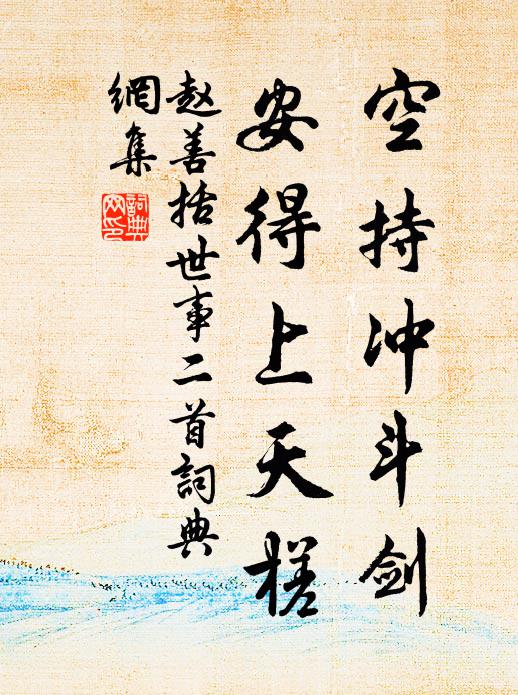 空持冲斗剑
安得上天槎
赵善括世事二首詞典
網集
詞典
网印